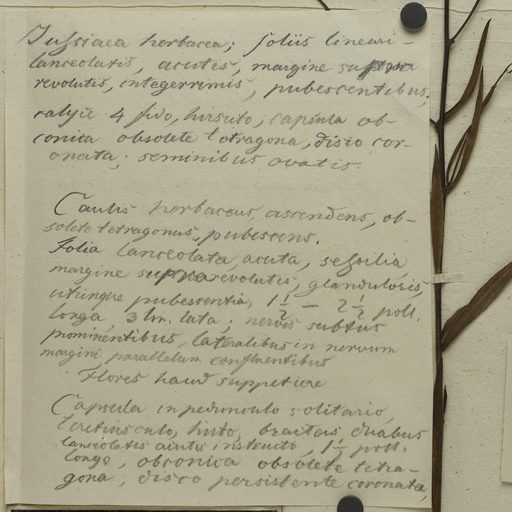 Jussiaea herbacea; foliis lineari-
lanceolatis, acutis, margine supra
revolutis, integerrimis, pubescentibus;
calyce 4 fido, hirsuto, capsula ob-
conica obsolete tetragona, disco cor-
onata; seminibus ovatis.
Caulis herbaceus, ascendens, ob-
solete tetragonus, pubescens.
Folia lanceolata, acuta, sessilia
margine supra revolutis, glandulosis,
utrinque pubescentia, 1 1/2 — 2 1/2 poll.
longa, 3 lin. lata; nervis subtus
prominentibus, lateralibus in nervum
margini parallelum confluentibus
Flores haud suppetiere
Capsula in pedunculo solitario,
teretiusculo, hirto, bracteis duabus
lanceolatis acutis instructo, 1 1/2 poll.
longa, obconica obsolete tetra-
gona, disco persistente coronata,